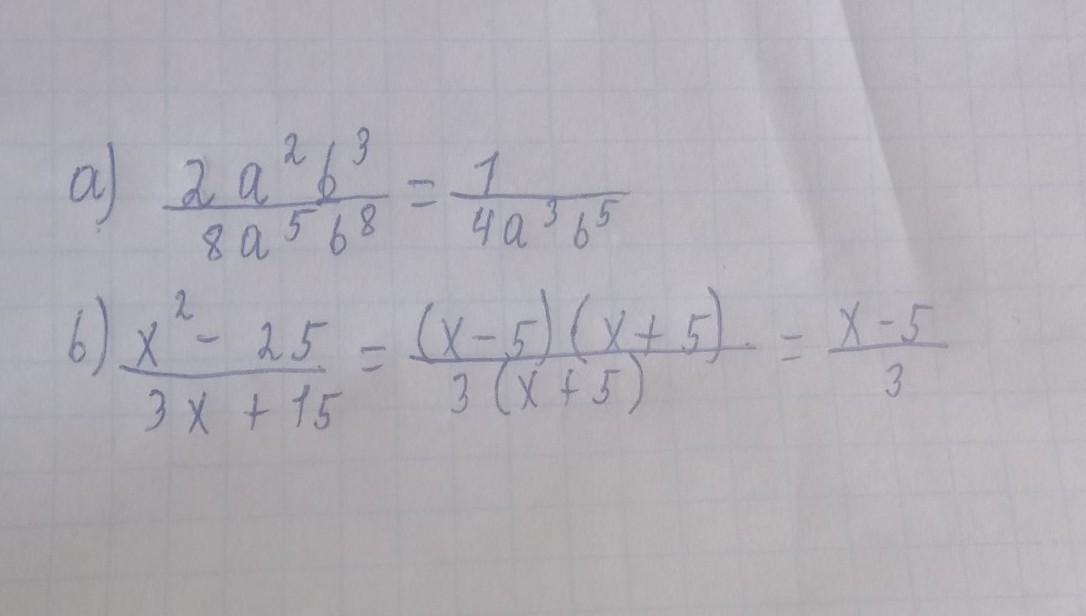 a) \frac{2a^2b^3}{8a^5b^8} = \frac{1}{4a^3b^5}
b) \frac{x^2 - 25}{3x + 15} = \frac{(x-5)(x+5)}{3(x+5)} = \frac{x-5}{3}